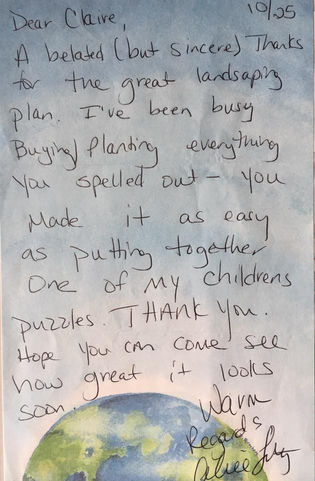 10/25
Dear Claire,
A belated (but sincere) Thanks
for the great landsaping
plan. I've been busy
Buying/Planting everything
You spelled out - you
Made it as easy
as putting together
One of my childrens
puzzles. THANK YOU.
Hope you can come see
how great it looks
soon.
Warm
Regards